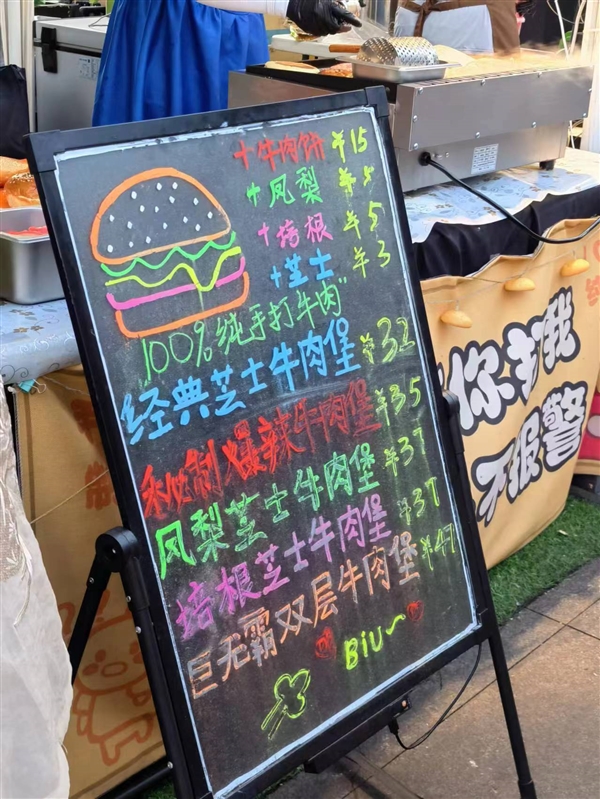 +牛肉饼 ¥15
+凤梨 ¥5
+培根 ¥5
+芝士 ¥3
100%纯手打牛肉"
经典芝士牛肉堡 ¥32
秘制爆辣牛肉堡 ¥35
凤梨芝士牛肉堡 ¥37
培根芝士牛肉堡 ¥37
巨无霸双层牛肉堡 ¥47
Biu~
你打我
不报警